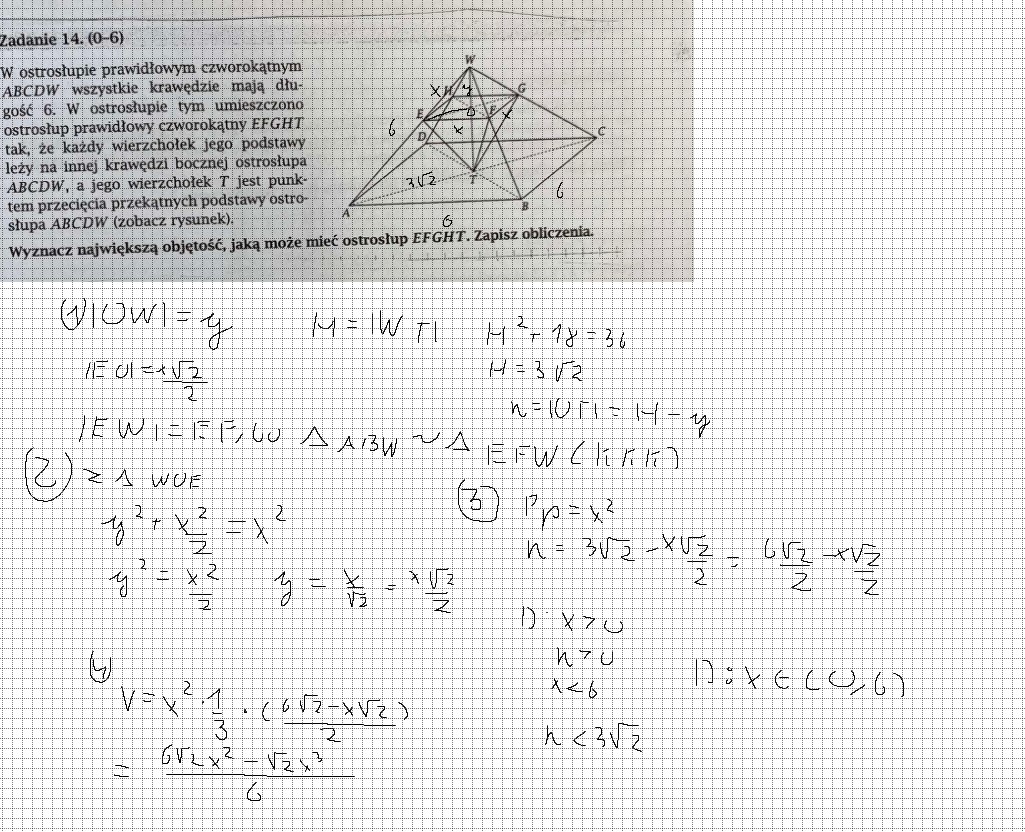 Zadanie 14. (0–6)
W ostrosłupie prawidłowym czworokątnym
ABCDW wszystkie krawędzie mają dłu-
gość 6. W ostrosłupie tym umieszczono
ostrosłup prawidłowy czworokątny EFGHT
tak, że każdy wierzchołek jego podstawy
leży na innej krawędzi bocznej ostrosłupa
ABCDW, a jego wierzchołek T jest punk-
tem przecięcia przekątnych podstawy ostro-
słupa ABCDW (zobacz rysunek).
Wyznacz największą objętość, jaką może mieć ostrosłup EFGHT. Zapisz obliczenia.
W
X H y G
E O F x
6 D x C
3√2 T 6
A 6 B
① |OW| = y
H = |WT|
H² + 18 = 36
|EO| = x√2/2
H = 3√2
h = |OT| = H - y
|EW| = EF, bo △ABW ~ △EFW (KKK)
② z △ WOE
y² + x²/2 = x²
y² = x²/2 y = x/√2 = x√2/2
③ Pp = x²
h = 3√2 - x√2/2 = 6√2/2 - x√2/2
D: x > 0
h > 0
x < 6
h < 3√2
D: x ∈ (0,6)
④
V = x² · 1/3 · (6√2 - x√2)/2
= (6√2x² - √2x³)/6